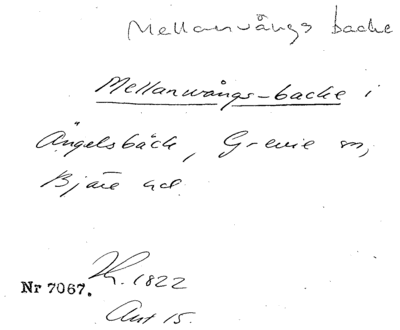 Mellanvångs backe
Mellanwångs-backe i
Ängelsbäck, Grevie sn,
Bjäre hd.
Nr 7067.
1822
Akt 15.